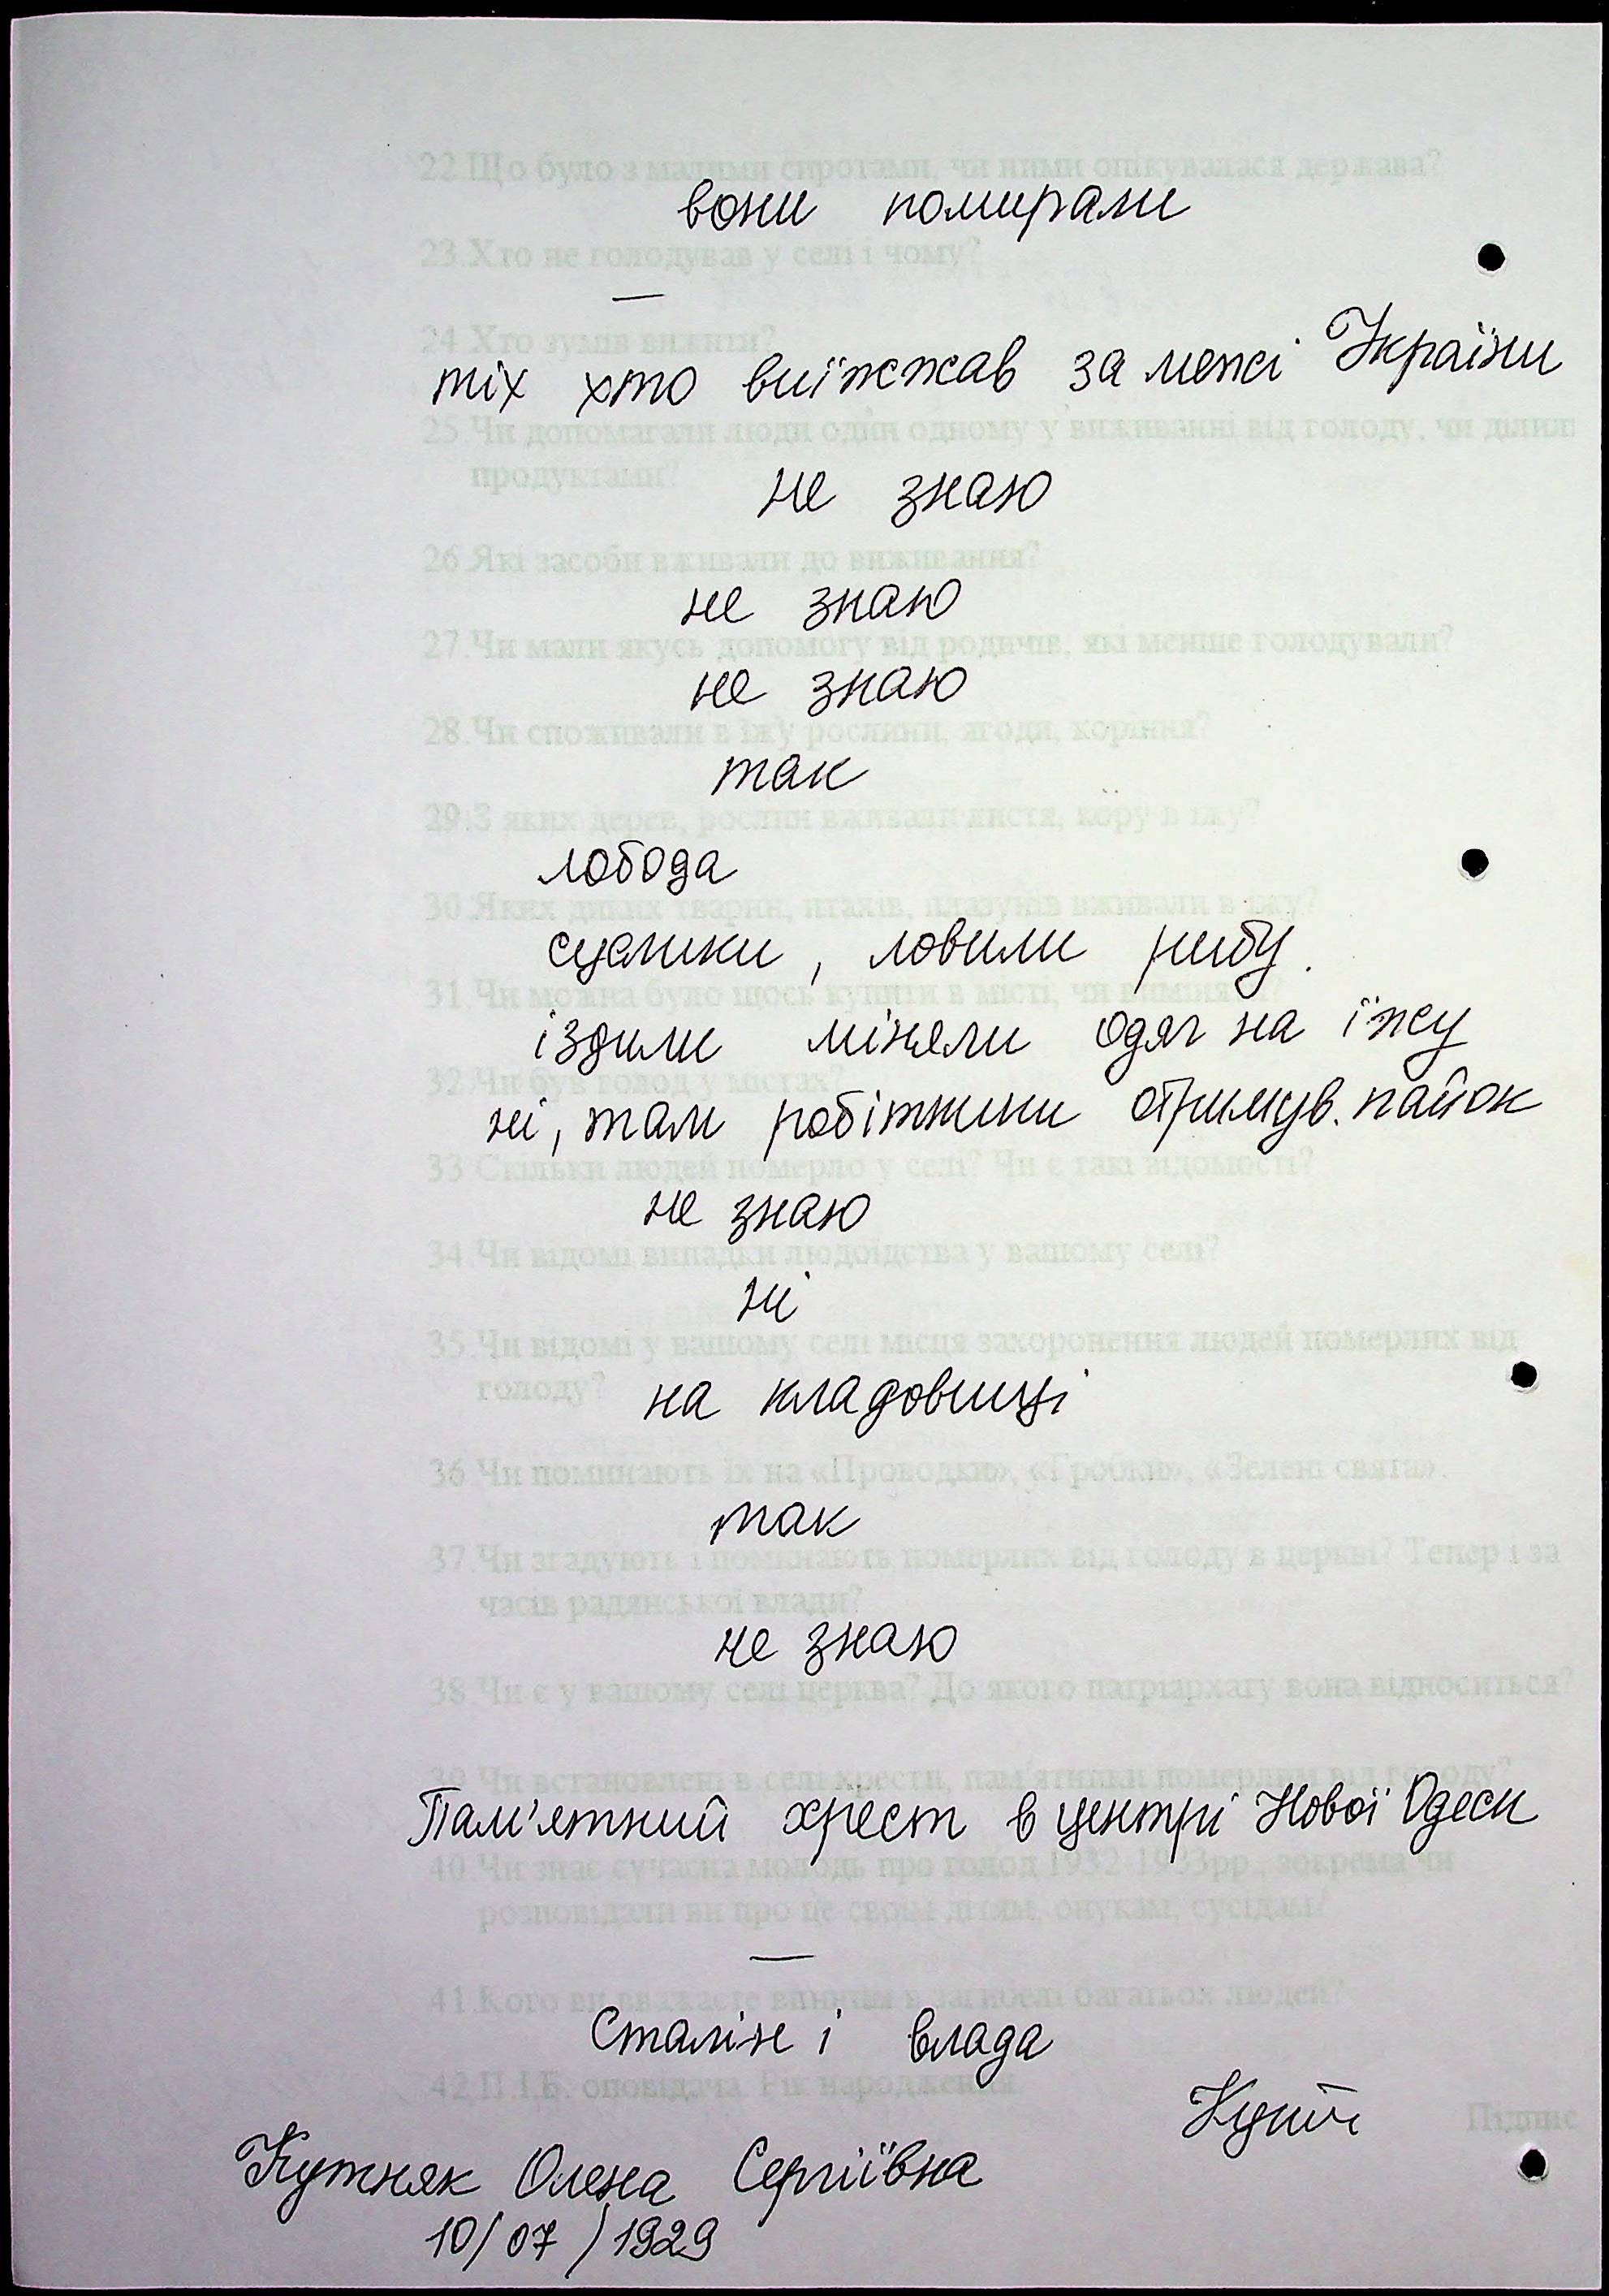 22.Що було з малими сиротами, чи ними опікувалася держава?
вони помирали
23.Хто не голодував у селі і чому?
—
24.Хто зумів вижити?
тіх хто виїжжав за межі України
25.Чи допомагали люди один одному у виживанні від голоду, чи ділил
продуктами?
не знаю
26.Які засоби вживали до виживання?
не знаю
27.Чи мали якусь допомогу від родичів, які менше голодували?
не знаю
28.Чи споживали в їжу рослини, ягоди, коріння?
так
29.З яких дерев, рослин вживали листя, кору в їжу?
лобода
30.Яких диких тварин, птахів, плазунів вживали в їжу?
суслики, ловили рибу.
31.Чи можна було щось купити в місті, чи виміняти?
їздили міняли одяг на їжу
32.Чи був голод у містах?
ні, там робітники отримув. пайок
33.Скільки людей померло у селі? Чи є такі відомості?
не знаю
34.Чи відомі випадки людоїдства у вашому селі?
ні
35.Чи відомі у вашому селі місця захоронення людей померлих від
голоду?
на кладовищі
36.Чи поминають їх на «Проводки», «Гробки», «Зелені свята».
так
37.Чи згадують і поминають померлих від голоду в церкві? Тепер і за
часів радянської влади?
не знаю
38.Чи є у вашому селі церква? До якого патріархату вона відноситься?
39.Чи встановлені в селі хрести, пам'ятники померлим від голоду?
Пам'ятний хрест в центрі Нової Одеси
40.Чи знає сучасна молодь про голод 1932-1933рр., зокрема чи
розповідали ви про це своїм дітям, онукам, сусідам?
—
41.Кого ви вважаєте винним в загибелі багатьох людей?
Сталін і влада
42.П.І.Б. оповідача. Рік народження
Підпис
Кутняк Олена Сергіївна
10/07/1929